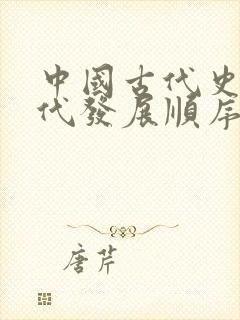 中國古代史
代發展順序
唐芹